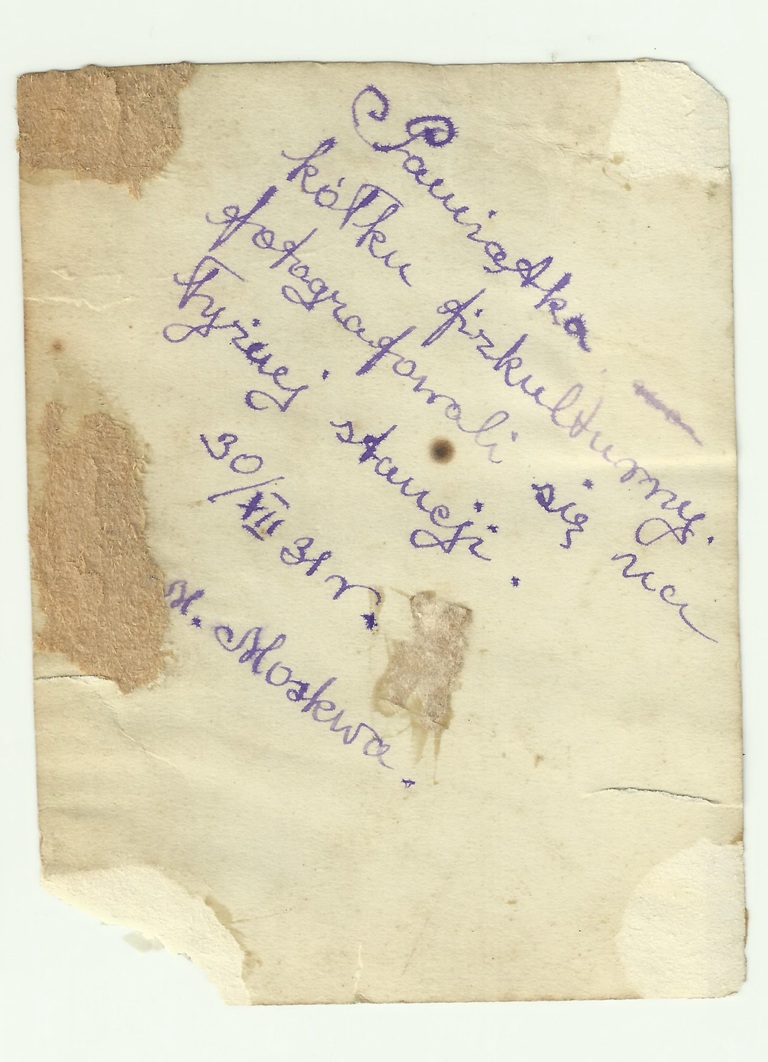 Pamiątka
kółku fizkulturny.
fotografowali się na
Łyżnej stancji.
30/XII 31 r.
M. Moskwa.